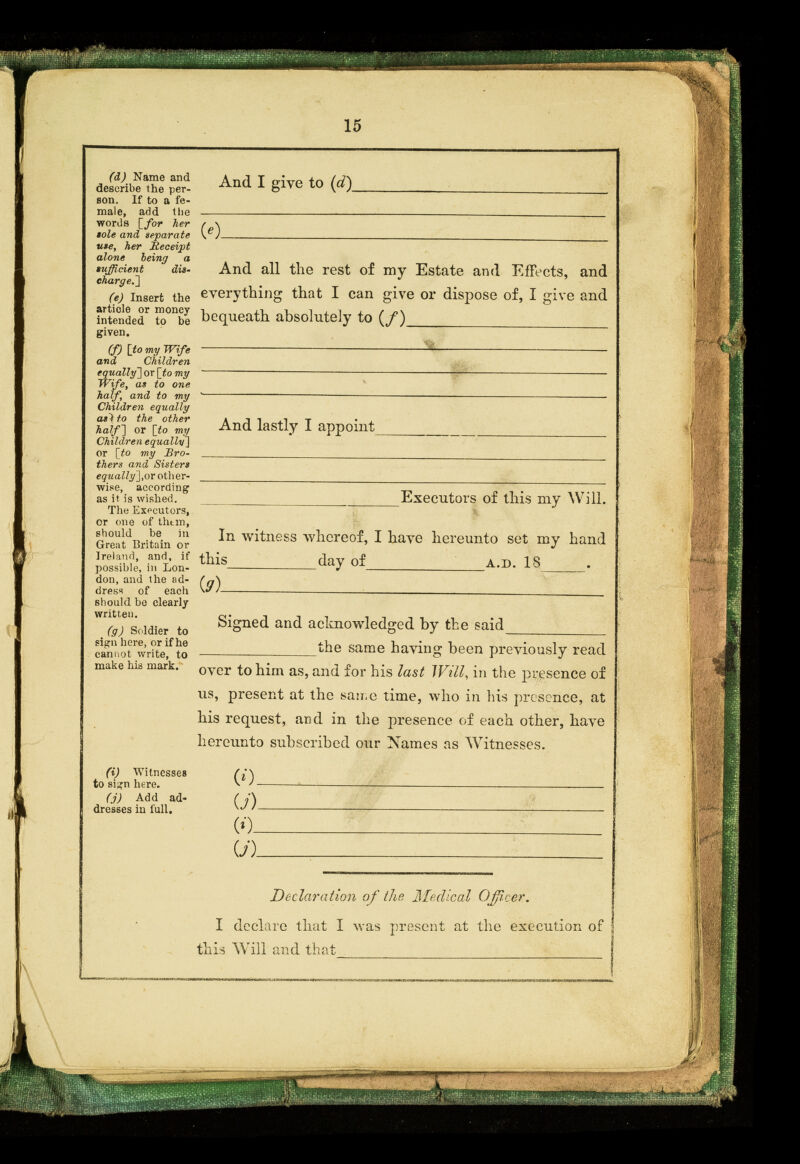 15
(d) Name and
describe the per-
son. If to a fe-
male, add the
words [for her
sole and separate
use, her Receipt
alone being a
sufficient dis-
charge.]
(e) Insert the
article or money
intended to be
given.
(f) [to my Wife
and Children
equally] or [to my
Wife, as to one
half, and to my
Children equally
as to the other
half] or [to my
Children equally]
or [to my Bro-
thers and Sisters
equally], or other-
wise, according
as it is wished.
The Executors,
or one of them,
should be in
Great Britain or
Ireland, and, if
possible, in Lon-
don, and the ad-
dress of each
should be clearly
written.
(g) Soldier to
sign here, or if he
cannot write, to
make his mark.
(i) Witnesses
to sign here.
(j) Add ad-
dresses in full.
And I give to (d)
(e)
And all the rest of my Estate and Effects, and
everything that I can give or dispose of, I give and
bequeath absolutely to (f)
And lastly I appoint
Executors of this my Will.
In witness whereof, I have hereunto set my hand
this day of A.D. 18 .
(g)
Signed and acknowledged by the said
the same having been previously read
over to him as, and for his last Will, in the presence of
us, present at the same time, who in his presence, at
his request, and in the presence of each other, have
hereunto subscribed our Names as Witnesses.
(i)
(j)
(i)
(j)
Declaration of the Medical Officer.
I declare that I was present at the execution of
this Will and that